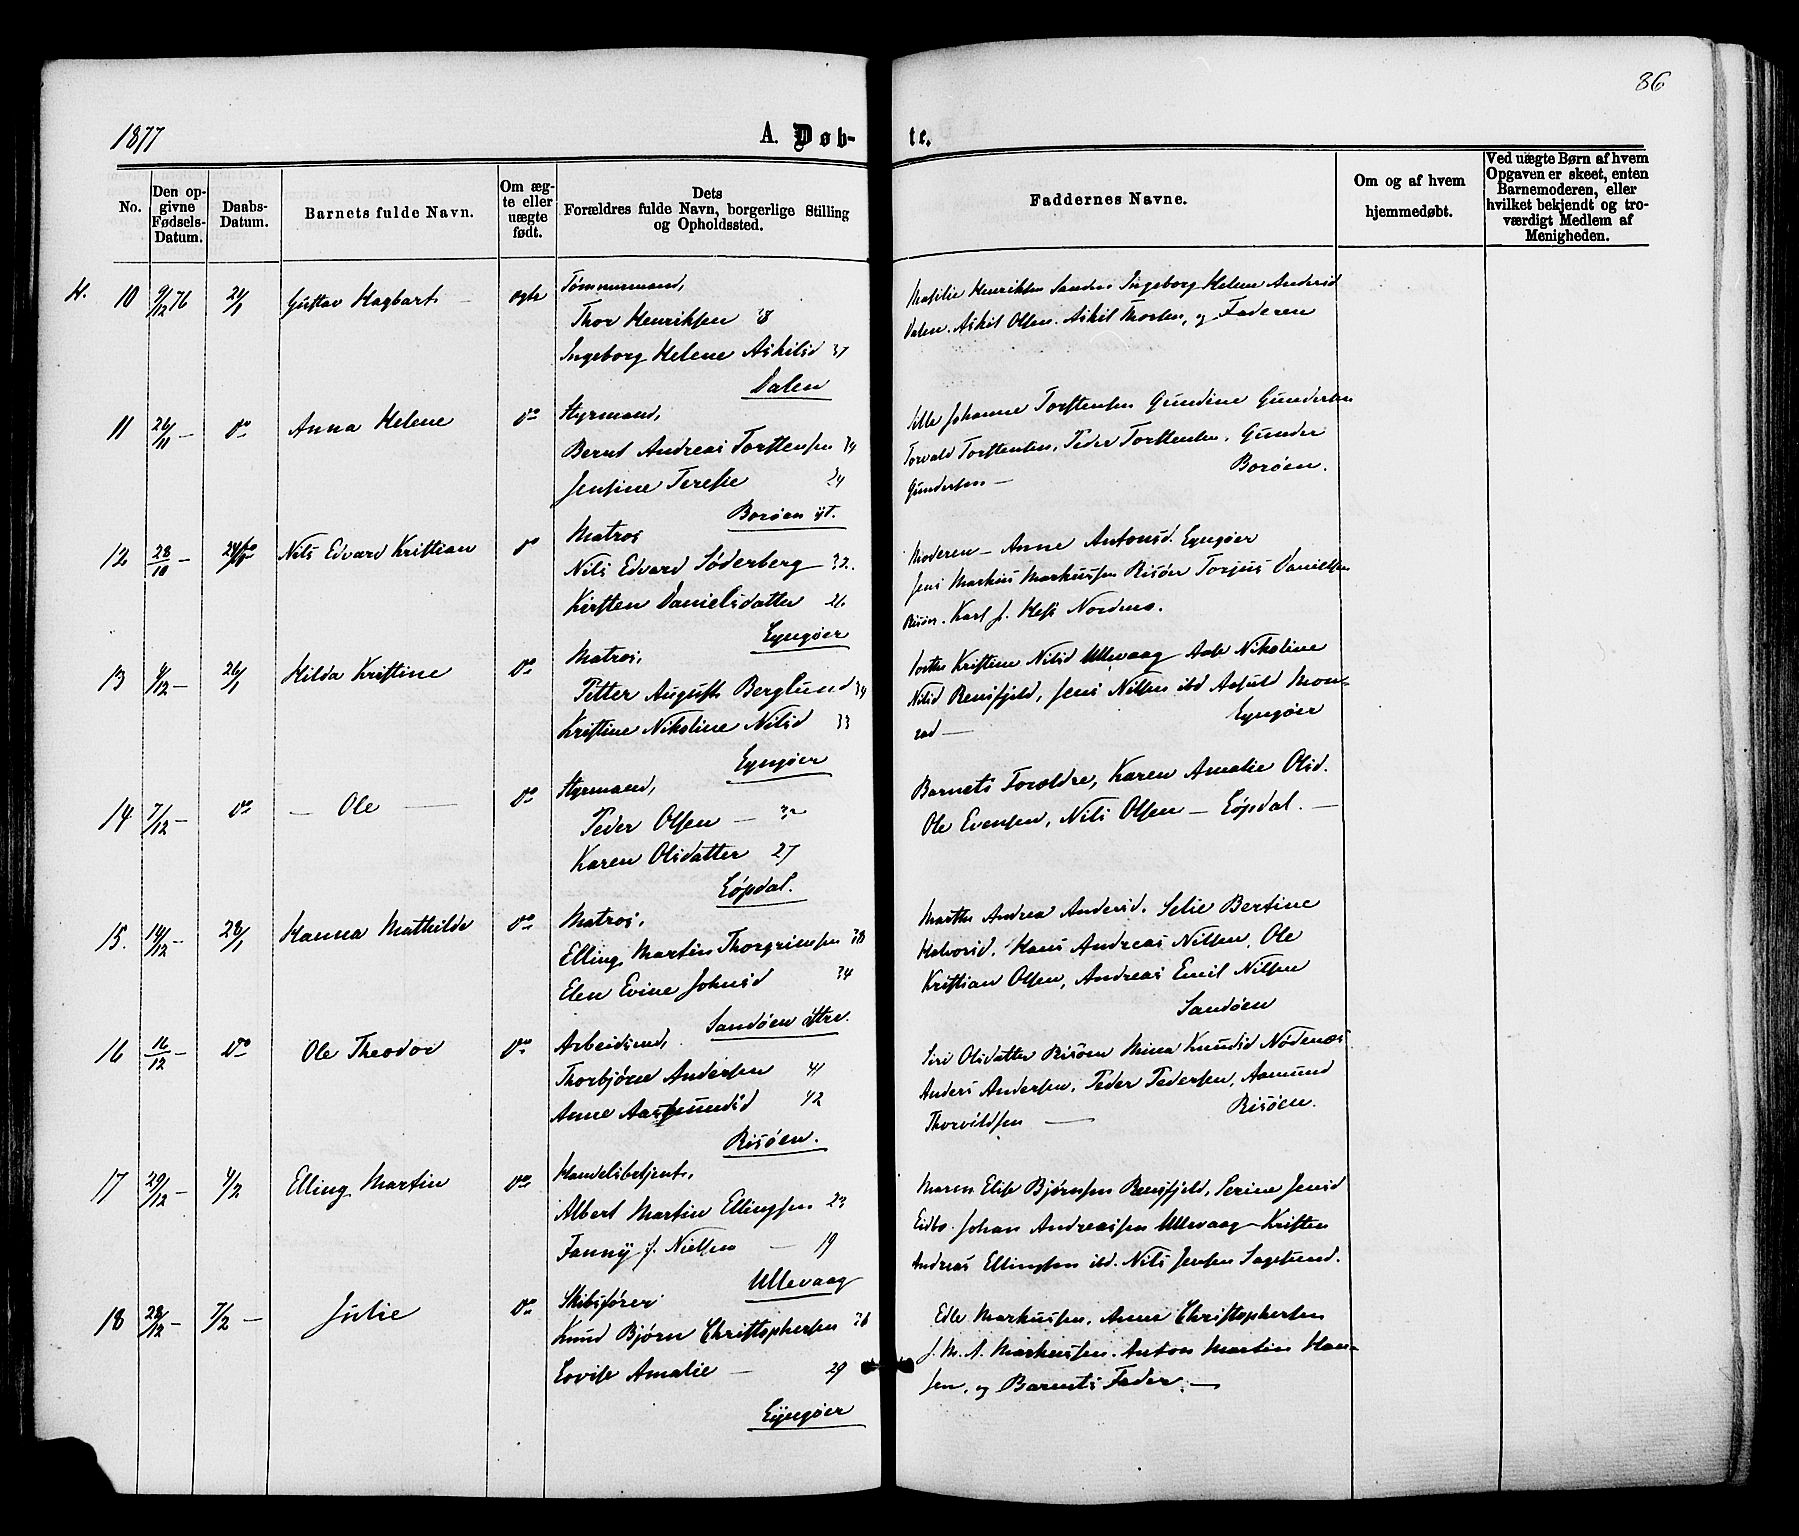 86
1877
A. Døb-
te.
No.
Den op-
givne
Fødsels-
Datum.
Daabs-
Datum.
Barnets fulde Navn.
Om æg-
te eller
uægte
født.
Dets
Forældres fulde Navn, borgerlige Stilling
og Opholdssted.
Faddernes Navne.
Om og af hvem
hjemmedøbt.
Ved uægte Børn af hvem
Opgaven er skeet, enten
Barnemoderen, eller
hvilket bekjendt og tro-
værdigt Medlem af
Menigheden.
H. 10 9/12 76 21/1 Gustav Hagbart — ægte
Tømmermand,
Thor Henriksen 38
Ingeborg Helene Askilsd 37
Dalen
Henriksen Ingeborg Helene Andersd
Dalen. Askil Olsen. Askil og Faderen
11 26/11 — do Anna Helene do
Styrmand,
Bernt Andreas Torstensen 34
Jensine Terese 24
Borøen
Johanne Torstensen Gundine Gundersen
Torvald Torstensen, Peder Torstensen, Gunder
Gundersen — Borøen.
12 28/10 — Nils Edvard Kristian do
Matros
Nils Edvard Søderberg 32.
Kirsten Danielsdatter 26
Lyngøer
Moderen — Anne Antonsd. Lyngøer
Jens Markus Markussen Risøer Torjus Danielsen
Risøer. Karl J. Hess
13 4/12 — 26/1 Hilda Kristine do
Matros,
Petter August Berglund 34
Kristine Nikoline Nilsd 33
Lyngøer
Kristine Nilsd Ullevaag Nikoline
Nilsd Rensfjeld, Jens Nilsen ibd Mon-
rad — Lyngøer
14 7/12 — do — Ole — do
Styrmand,
Peder Olsen —
Karen Olsdatter 27
Løpdal.
Barnets Forældre, Karen Amalie Olsd.
Ole Evensen, Nils Olsen — Løpdal. —
15. 14/12 — 28/1 Hanna Mathilde do
Matros,
Elling Martin Thorgrimsen 38
Elen Evine Johnsd 34
Sandøen
Marthe Andrea Andersd. Selie Bertine
Halvorsd. Hans Andreas Nilsen, Ole
Kristian Olsen, Andreas Emil Nilsen
Sandøen
16 16/12 — do Ole Theodor do
Arbeidsmd,
Thorbjørn Andersen 41
Anne Aasmundsd 42
Risøen.
Siri Olsdatter Risøen Mina Knudsd Nødenæs
Anders Andersen, Peder Pedersen, Aamund
Thorvildsen — Risøen.
17 29/12 — 4/2 Elling Martin do
Handelsbetjent,
Albert Martin Ellingsen 23
Fanny f. Nielsen — 19
Ullevaag
Maren Elise Bjørnsen Rensfjeld, Serine Jensd
Eidbo. Johan Andreassen Ullevaag — Kristen
Andreas Ellingsen ibd. Nils Jensen Sagesund.
18 28/12 — 7/2 — Julie do
Skibsfører
Knud Bjørn Christophersen 36
Lovise Amalie — 29
Lyngøer
Edle Markussen, Anne Christophersen
J. M. A. Markussen. Anton Martin Han-
sen, og Barnets Fader. —